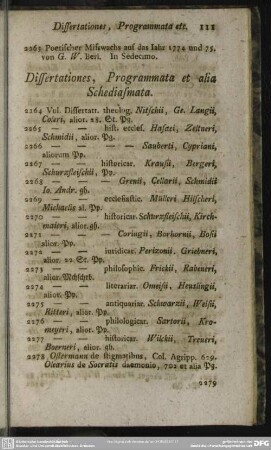 Dissertationes, Programmata etc. 111
2263 Poetischer Misswachs auf das Iahr 1774 und 75.
von G. W. Berl. In Sedecimo.
Dissertationes, Programmata et alia
Schediasmata.
2264 Vol. Dissertatt. theolog. Nitschii, Ge. Langii,
alior. 28. St. Pg.
2265 — — hist. eccles. Hasaei, Zeltneri,
Schmidii, alior. Pg.
2266 — — — Sauberti, Cypriani,
aliorum Pg.
2267 — — historicar. Krausii, Bergeri,
Schurzfleischii, Pg.
2268 — — — Grenii, Cellarii, Schmidii
Io. Andr. gh.
2269 — — ecclesiastic. Mülleri
Michaelis al. Pg.
2270 — — historicar. Schurzfleischii, Kirch-
maieri, alior. gh.
2271 — — — Boxhornii, Bosii
alior. Pg.
2272 — — iuridicar. Perizonii, Griebneri,
alior. 22. St. Pg.
2273 — — philosophic. Frickii, Rabeneri,
alior.
2274 — — literariar. Omeisii, Heuslingii,
aliot. Pg.
2275 — — antiquariar. Schwarzii, Weisii,
Ritteri, alior. Pg.
2276 — — philologicar. Sartorii, Kro-
meyeri, alior. Pg.
2277 — — historicar. Wilckii, Treueri,
Boerneri, alior. gh.
2278 Ostermann de stigmatibus, Col. Agripp. 629.
Olearius de Socratis daemonio, 702 et alia Pg.
2279